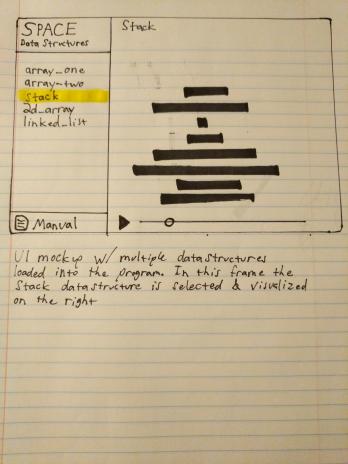 SPACE
Data Structures
Stack
array_one
array-two
Stack
2d_array
linked_list
Manual
UI mockup w/ multiple datastructures
loaded into the program. In this frame the
Stack datastructure is selected & visualized
on the right